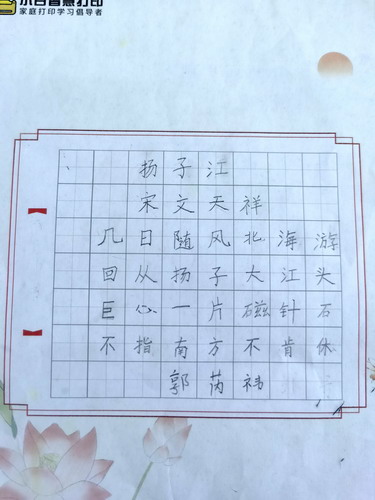 小白智慧打印
家庭打印学习倡导者
扬子江
宋文天祥
几日随风北海游
回从扬子大江头
臣心一片磁针石
不指南方不肯休
郭芮祎